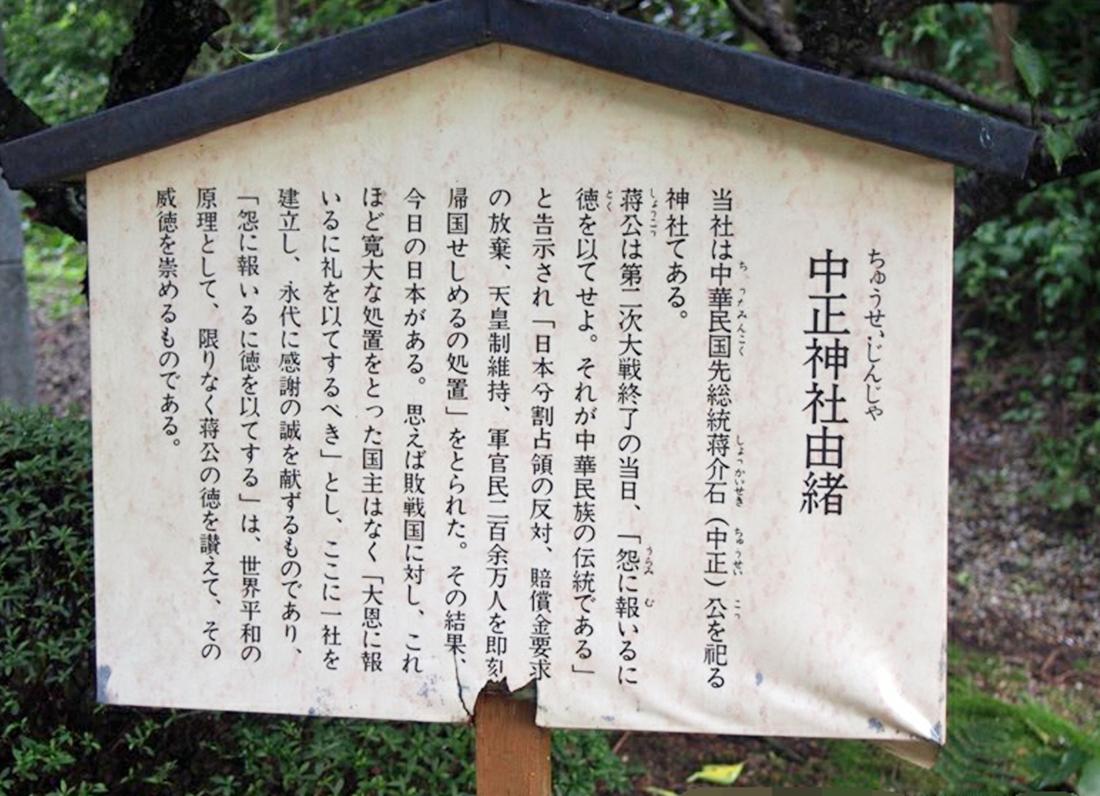 ちゅうせいじんじゃ
中正神社由緒
当社は中華民国先総統蒋介石（中正）公を祀る
神社てある。
蒋公は第二次大戦終了の当日、「怨に報いるに
徳を以てせよ。それが中華民族の伝統である」
と告示され「日本分割占領の反対、賠償金要求
の放棄、天皇制維持、軍官民二百余万人を即刻
帰国せしめるの処置」をとられた。その結果、
今日の日本がある。思えば敗戦国に対し、これ
ほど寛大な処置をとった国主はなく「大恩に報
いるに礼を以てするべき」とし、ここに一社を
建立し、永代に感謝の誠を献ずるものであり、
「怨に報いるに徳を以てする」は、世界平和の
原理として、限りなく蒋公の徳を讃えて、その
威徳を崇めるものである。